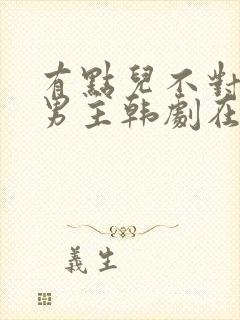 有點兒不對
男主韩劇在
義生